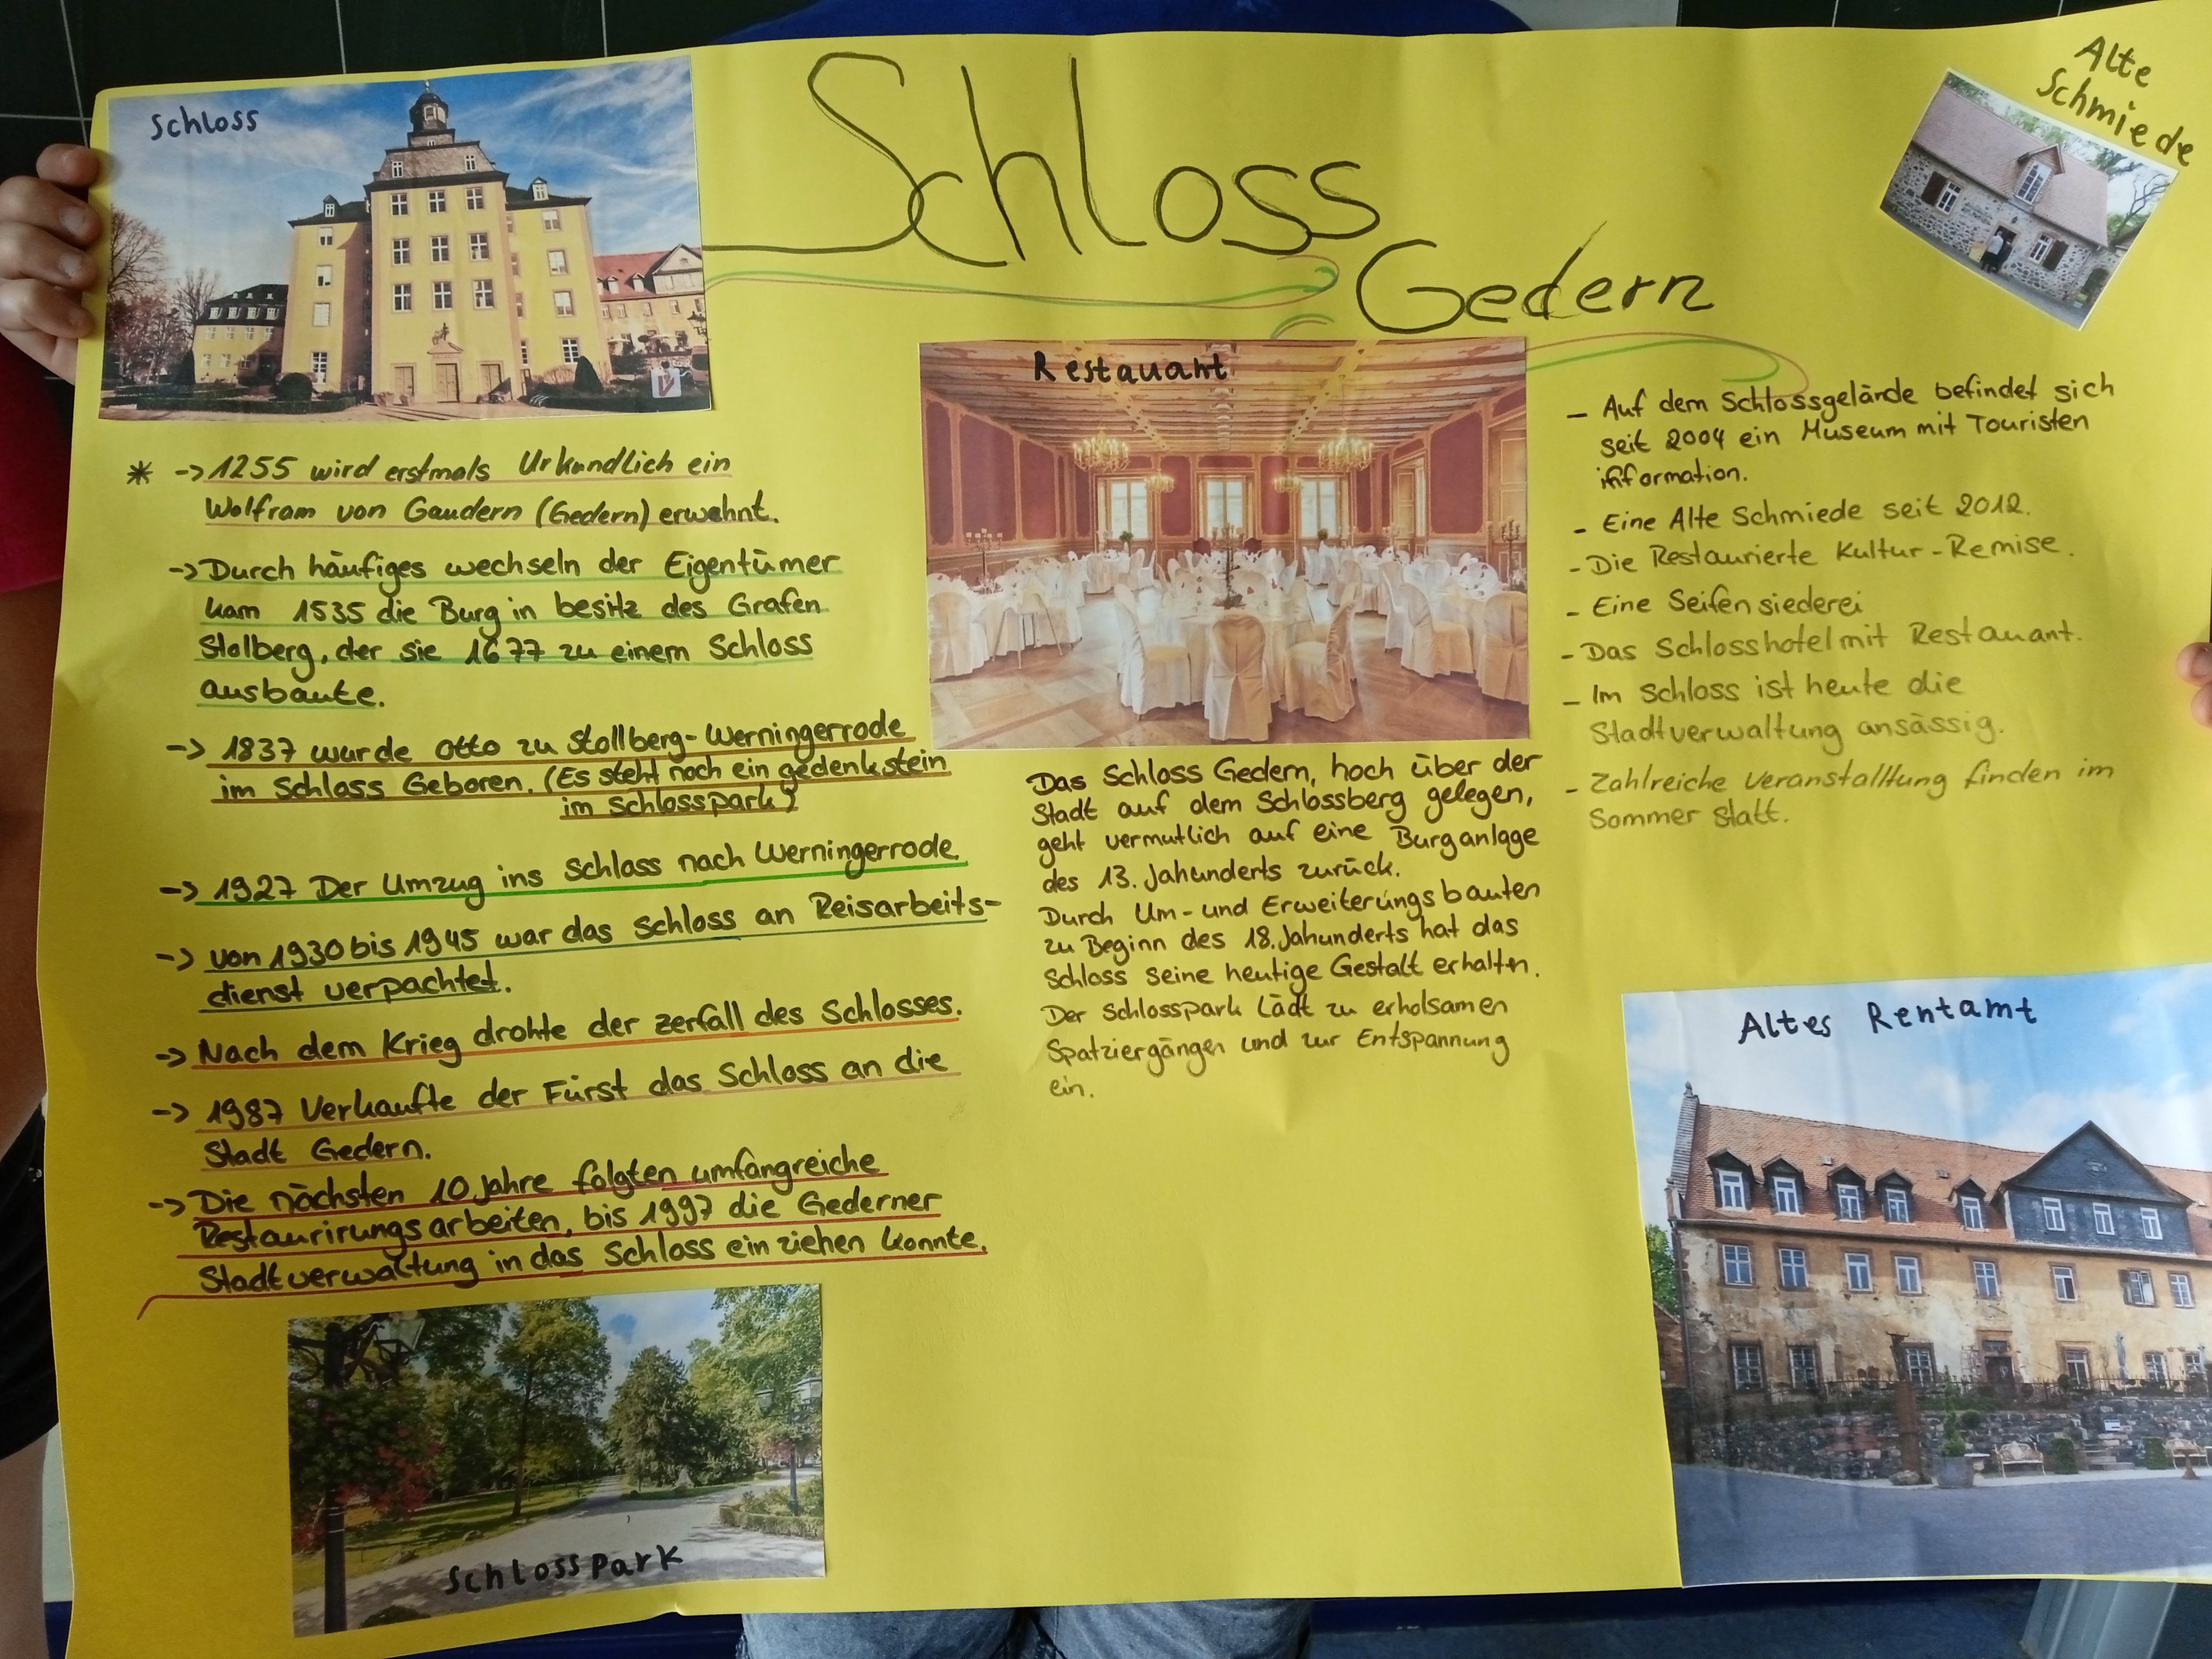 Schloss
Gedern
Schloss
* -> 1255 wird erstmals Urkundlich ein
Wolfram von Gaudern (Gedern) erwehnt.
-> Durch häufiges wechseln der Eigentümer
kam 1535 die Burg in besitz des Grafen
Stolberg, der sie 1677 zu einem Schloss
ausbaute.
-> 1837 wurde Otto zu Stollberg-Werningerrode
im Schloss Geboren. (Es steht noch ein gedenkstein
im Schlosspark)
-> 1927 Der Umzug ins Schloss nach Werningerrode.
-> von 1930 bis 1945 war das Schloss an Reisarbeits-
dienst verpachtet.
-> Nach dem Krieg drohte der zerfall des Schlosses.
-> 1987 Verkaufte der Fürst das Schloss an die
Stadt Gedern.
-> Die nächsten 10 Jahre folgten umfangreiche
Restaurirungsarbeiten, bis 1997 die Gederner
Stadtverwaltung in das Schloss ein ziehen konnte.
Schlosspark
Restauant
Das Schloss Gedern, hoch über der
Stadt auf dem Schlossberg gelegen,
geht vermutlich auf eine Burganlage
des 13. Jahunderts zurück.
Durch Um- und Erweiterungsbauten
zu Beginn des 18. Jahunderts hat das
Schloss seine heutige Gestalt erhalten.
Der Schlosspark Lädt zu erholsamen
Spatziergängen und zur Entspannung
ein.
Alte
Schmiede
- Auf dem Schlossgelände befindet sich
seit 2004 ein Museum mit Touristen
information.
- Eine Alte Schmiede seit 2012.
- Die Restaurierte Kultur-Remise.
- Eine Seifensiederei
- Das Schlosshotel mit Restauant.
- Im Schloss ist heute die
Stadtverwaltung ansässig.
- Zahlreiche Veranstalltung finden im
Sommer statt.
Altes Rentamt